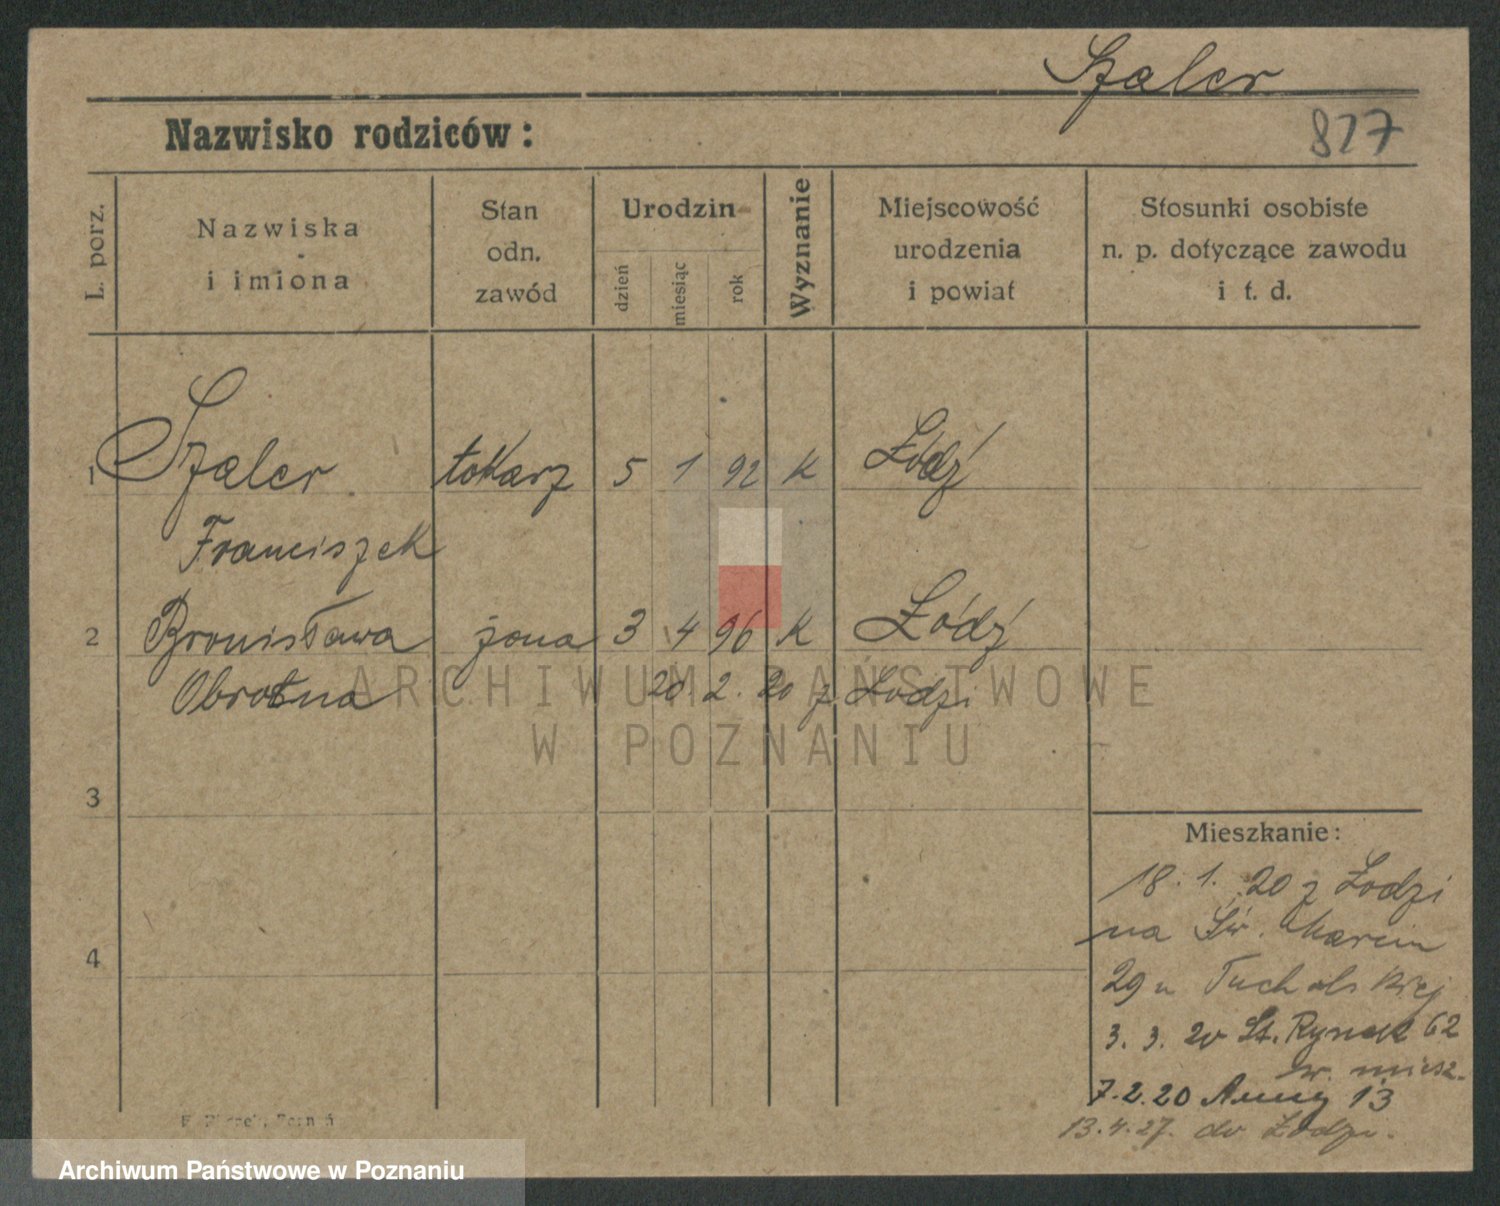 Szaler
Nazwisko rodziców:
827
L. porz.
Nazwiska
i imiona
Stan
odn.
zawód
Urodzin
dzień
miesiąc
rok
Wyznanie
Miejscowość
urodzenia
i powiat
Stosunki osobiste
n. p. dotyczące zawodu
i t. d.
1 Szaler tokarz 5 1 92 K Łódź
Franciszek
2 Bronisława żona 3 4 96 K Łódź
Obrotna 20. 2. 20 z Łodzi
ARCHIWUM PAŃSTWOWE
W POZNANIU
3
4
Mieszkanie:
18. 1. 20 z Łodzi
na Św. Marcin
29 u Tucholskiej
3. 3. 20 St. Rynek 62
w. miesz.
7.2.20 Anny 13
13.4.27. do Łodzi.
Archiwum Państwowe w Poznaniu